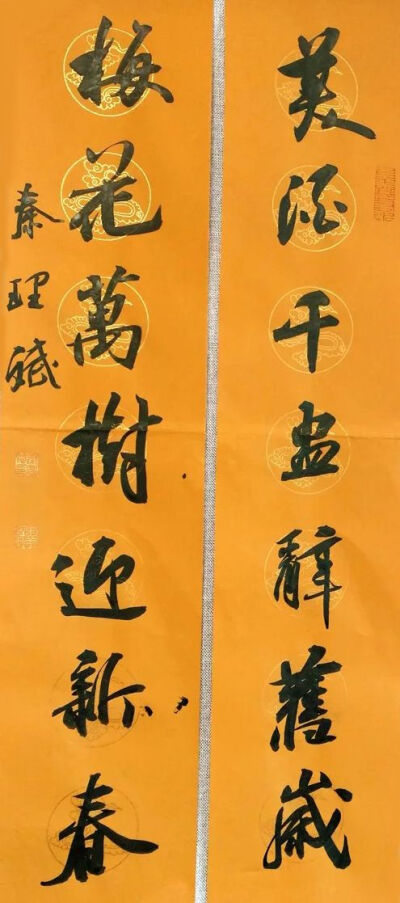 美酒千盅辞舊歲
梅花萬樹迎新春
秦理斌